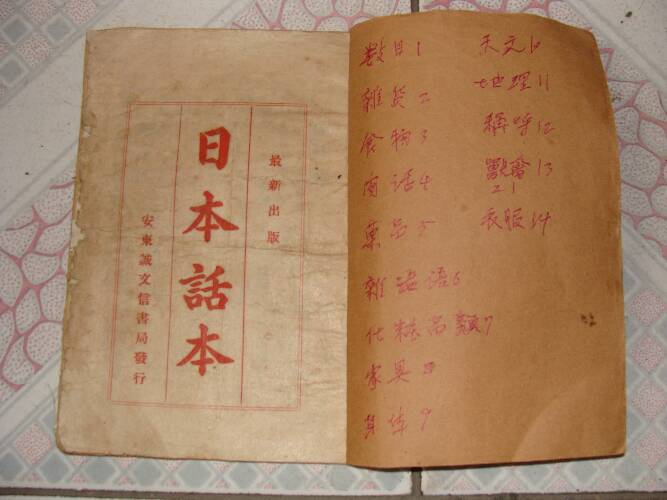 最新出版
日本話本
安東誠文信書局發行
數目1
雜貨2
食物3
商话4
菓品5
雜話语6
化粧品類7
家具8
身体9
天文10
地理11
稱呼12
13
21
衣服14